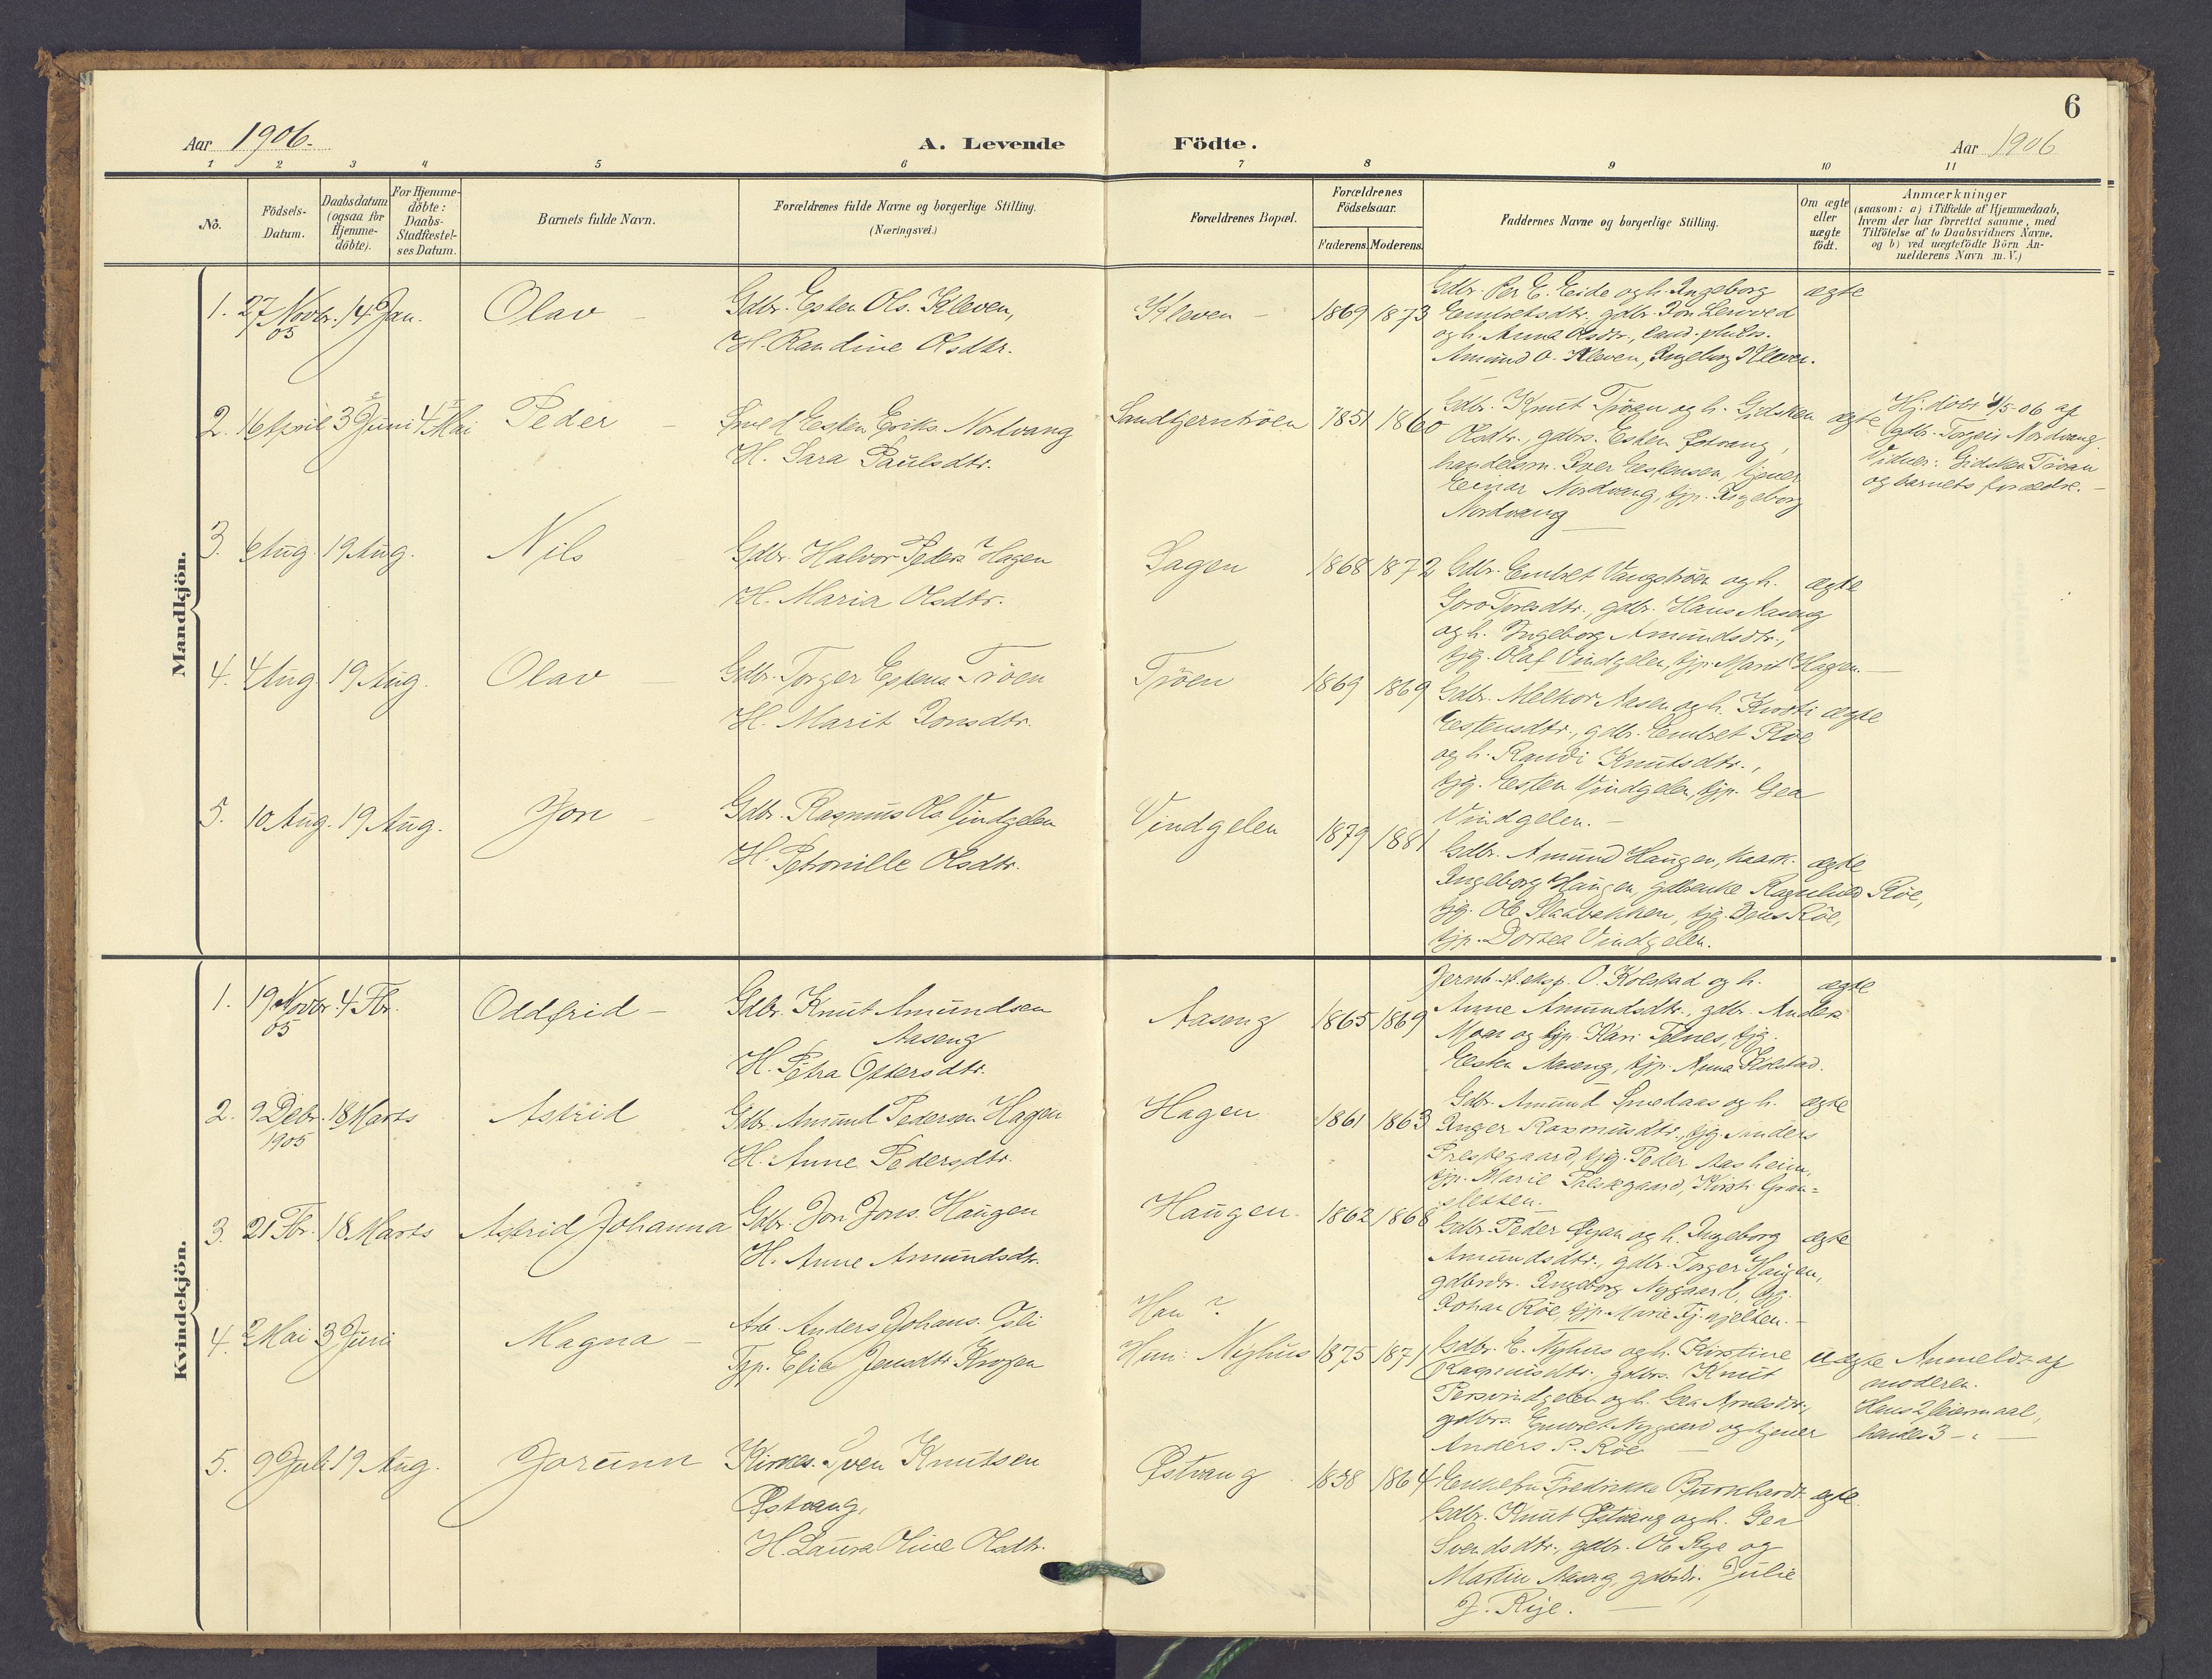 6
Aar 1906.
A. Levende
Födte.
Aar 1906
1 2 3 4 5 6 7 8 9 10 11
No.
Födsels-
Datum.
Daabsdatum
(ogsaa for
Hjemme-
döbte).
For Hjemme-
döbte:
Daabs-
Stadfæstel-
ses Datum.
Barnets fulde Navn.
Forældrenes fulde Navne og borgerlige Stilling.
(Næringsvei.)
Forældrenes Bopæl.
Forældrenes
Födselsaar.
Faderens. Moderens.
Faddernes Navne og borgerlige Stilling.
Om ægte
eller
uægte
födt.
Anmærkninger
(saasom: a) i Tilfælde af Hjemmedaab,
hvem der har forrettet samme, med
Tilföielse af to Daabsvidners Navne.
og b) ved uægtefödte Börn An-
melderens Navn m. V.)
Mandkjön.
1. 27 Novbr. 05 14 Jan. Olav
Gdbr. Esten Ols. Kleven,
H. Randine Olsdtr.
Kleven 1869 1873
Gdbr. Per E. Eide og h. Ingeborg
Embretsdtr., gdbr. Jon
og h. Anna Olsdtr., cand. philos.
Amund O. Kleven, Ingeborg Kleven.
ægte
2. 16 April 3 Juni 4 Mai Peder
Smed Esten Eriks. Nordvang
H. Sara Paulsdtr.
Sandtjerntröen 1851 1860
Gdbr. Knut Tröen og h. Gjdsken
Olsdtr., gdbrs. Esten Østvang,
handelsm. Iver Estensen, tjener
Einar Nordvang, tjp. Ingeborg
Nordvang
ægte
Hj. döbt 4/5 06 af
gdbr. Torgeir Nordvang.
Vidner: Gidsken Tröen
og barnets forældre.
3. 6 Aug. 19 Aug. Nils
Gdbr. Halvor Peders. Hagen
H. Maria Olsdtr.
Sagen 1868 1872
Gdbr. Embret Vangströen og h.
Goro Toresdtr., gdbr. Hans Aaseng
og h. Ingeborg Amundsdtr.,
tjg. Olaf Vindgelen, tjp. Marit Hagen.
ægte
4. 4 Aug. 19 Aug. Olav
Gdbr. Torger Estens. Tröen
H. Marit Jonsdtr.
Tröen 1869 1869
Gdbr. Melkor Aasen og h. Kirsti
Estensdtr., gdbr. Embret Röe
og h. Randi Knutsdtr.,
tjg. Esten Vindgelen, tjp. Gea
Vindgelen.
ægte
5. 10 Aug. 19 Aug. Jon
Gdbr. Rasmus Ols. Vindgelen
H. Petronille Olsdtr.
Vindgelen 1879 1881
Gdbr. Amund Haugen, kaark.
Ingeborg Haugen, gdbrenke Ragnhild Röe,
tjg. Ole Slaabakken, tjg. Jens Röe,
tjp. Dortea Vindgelen.
ægte
Kvindekjön.
1. 19 Novbr. 05 4 Fbr. Oddfrid
Gdbr. Knut Amundsen
Aaseng
H. Petra Ottersdtr.
Aaseng 1865 1869
Jernb. st. eksp. O. Kolstad og h.
Anne Amundsdtr., gdbr. Anders
Moen og tjp. Kari Telnes, tjg.
Esten Aaseng, tjp. Anna Kolstad.
ægte
2. 9 Debr. 1905 18 Marts Astrid
Gdbr. Amund Pedersen Hagen
H. Anne Pedersdtr.
Hagen 1861 1863
Gdbr. Amund Smedaas og h.
Inger Rasmusdtr., tjg. Anders
Prestegaard, tjg. Peder Aasheim,
tjp. Marie Prestegaard, Kirsti Gran-
sletten.
ægte
3. 21 Fbr. 18 Marts Astrid Johanna
Gdbr. Jon Jons. Haugen
H. Anne Amundsdtr.
Haugen 1862 1868
Gdbr. Peder Øyan og h. Ingeborg
Amundsdtr., gdbr. Torger Haugen,
gdbrdtr. Ingeborg Nygaard, tjg.
Johan Röe, tjp. Marie
ægte
4. 2 Mai 3 Juni Magna
Arb. Anders Johans. Osli
Tjp. Elie Jensdtr. Krogen
Han ?
Hun: Nyhus 1875 1871
Gdbr. E. Nyhus og h. Kirstine
Rasmusdtr., gdbrs. Knut
Persvindgelen og h. Gea Arnesdtr.,
gdbrs. Embret Nygaard og tjener
Anders P. Röe
uægte
Anmeldt af
moderen.
Hans 2 leiermaal,
hendes 3 - " -
5. 9 Juli 19 Aug. Jorunn
Kirkes. Sven Knutsen
Østvang,
H. Laura Oline Olsdtr.
Østvang 1838 1864
Enkefru Fredrikke Burchardt
Gdbr. Knut Østvang og h. Gea
Svendsdtr., gdbr. Ole Rye og
Martin Aaseng, gdbrdtr. Julie
J. Rye.
ægte